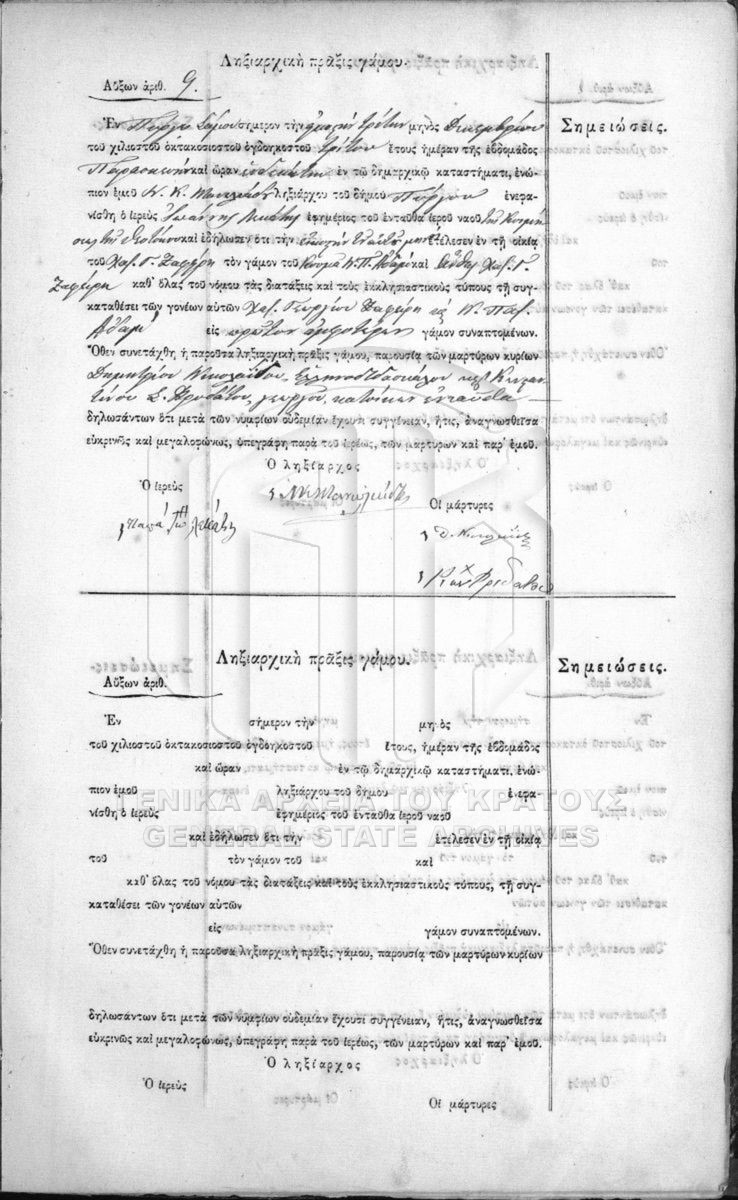 Ληξιαρχικὴ πρᾶξις γάμου.
Αὔξων ἀριθ. 9.
Σημειώσεις.
Ἐν Πύργῳ Σάμου σήμερον τὴν εἰκοστὴν τρίτην μηνὸς Δεκεμβρίου
τοῦ χιλιοστοῦ ὀκτακοσιοστοῦ ὀγδοηκοστοῦ τρίτου ἔτους ἡμέραν τῆς ἑβδομάδος
Παρασκευὴν καὶ ὥραν ἑνδεκάτην ἐν τῷ δημαρχικῷ καταστήματι, ἐνώ-
πιον ἐμοῦ Ν. Κ. ληξιάρχου τοῦ δήμου Πύργου ἐνεφα-
νίσθη ὁ ἱερεὺς Ἰωάννης Λεκάτης ἐφημέριος τοῦ ἐνταῦθα ἱεροῦ ναοῦ τῆς Κοιμή-
σεως τῆς Θεοτόκου καὶ ἐδήλωσεν ὅτι τὴν ἐτέλεσεν ἐν τῇ οἰκίᾳ
τοῦ Χατ. Γ. Ζαφείρη τὸν γάμον τοῦ Κοσμᾶ Ν. Π. Ἀδαμ καὶ Χατ. Γ.
Ζαφείρη καθ' ὅλας τοῦ νόμου τὰς διατάξεις καὶ τοὺς ἐκκλησιαστικοὺς τύπους τῇ συγ-
καταθέσει τῶν γονέων αὐτῶν Χατ. Γεωργίου Ζαφείρη καὶ Ν. Παπ.
Ἀδαμ εἰς πρῶτον ἀμφοτέρων γάμον συναπτομένων.
Ὅθεν συνετάχθη ἡ παροῦσα ληξιαρχικὴ πρᾶξις γάμου, παρουσίᾳ τῶν μαρτύρων κυρίων
Δημητρίου Νικολαΐδου, Ἑλληνοδιδασκάλου καὶ Κωνσταν-
τίνου Σ. γεωργοῦ, κατοίκων ἐνταῦθα
δηλωσάντων ὅτι μετὰ τῶν νυμφίων οὐδεμίαν ἔχουσι συγγένειαν, ἥτις, ἀναγνωσθεῖσα
εὐκρινῶς καὶ μεγαλοφώνως, ὑπεγράφη παρὰ τοῦ ἱερέως, τῶν μαρτύρων καὶ παρ' ἐμοῦ.
Ὁ ληξίαρχος
Ὁ ἱερεὺς
Οἱ μάρτυρες
Παπᾶ Ἰω Λεκάτης
Δ. Νικολαΐδης
Ληξιαρχικὴ πρᾶξις γάμου.
Αὔξων ἀριθ.
Σημειώσεις.
Ἐν σήμερον τὴν μηνὸς
τοῦ χιλιοστοῦ ὀκτακοσιοστοῦ ὀγδοηκοστοῦ ἔτους, ἡμέραν τῆς ἑβδομάδος
καὶ ὥραν ἐν τῷ δημαρχικῷ καταστήματι, ἐνώ-
πιον ἐμοῦ ληξιάρχου τοῦ δήμου ἐνεφα-
ΓΕΝΙΚΑ ΑΡΧΕΙΑ ΤΟΥ ΚΡΑΤΟΥΣ
νίσθη ὁ ἱερεὺς ἐφημέριος τοῦ ἐνταῦθα ἱεροῦ ναοῦ
GENERAL STATE ARCHIVES
καὶ ἐδήλωσεν ὅτι τὴν ἐτέλεσεν ἐν τῇ οἰκίᾳ
τοῦ τὸν γάμον τοῦ καὶ
καθ' ὅλας τοῦ νόμου τὰς διατάξεις καὶ τοὺς ἐκκλησιαστικοὺς τύπους, τῇ συγ-
καταθέσει τῶν γονέων αὐτῶν
εἰς γάμον συναπτομένων.
Ὅθεν συνετάχθη ἡ παροῦσα ληξιαρχικὴ πρᾶξις γάμου, παρουσίᾳ τῶν μαρτύρων κυρίων
δηλωσάντων ὅτι μετὰ τῶν νυμφίων οὐδεμίαν ἔχουσι συγγένειαν, ἥτις, ἀναγνωσθεῖσα
εὐκρινῶς καὶ μεγαλοφώνως, ὑπεγράφη παρὰ τοῦ ἱερέως, τῶν μαρτύρων καὶ παρ' ἐμοῦ.
Ὁ ληξίαρχος
Ὁ ἱερεὺς
Οἱ μάρτυρες